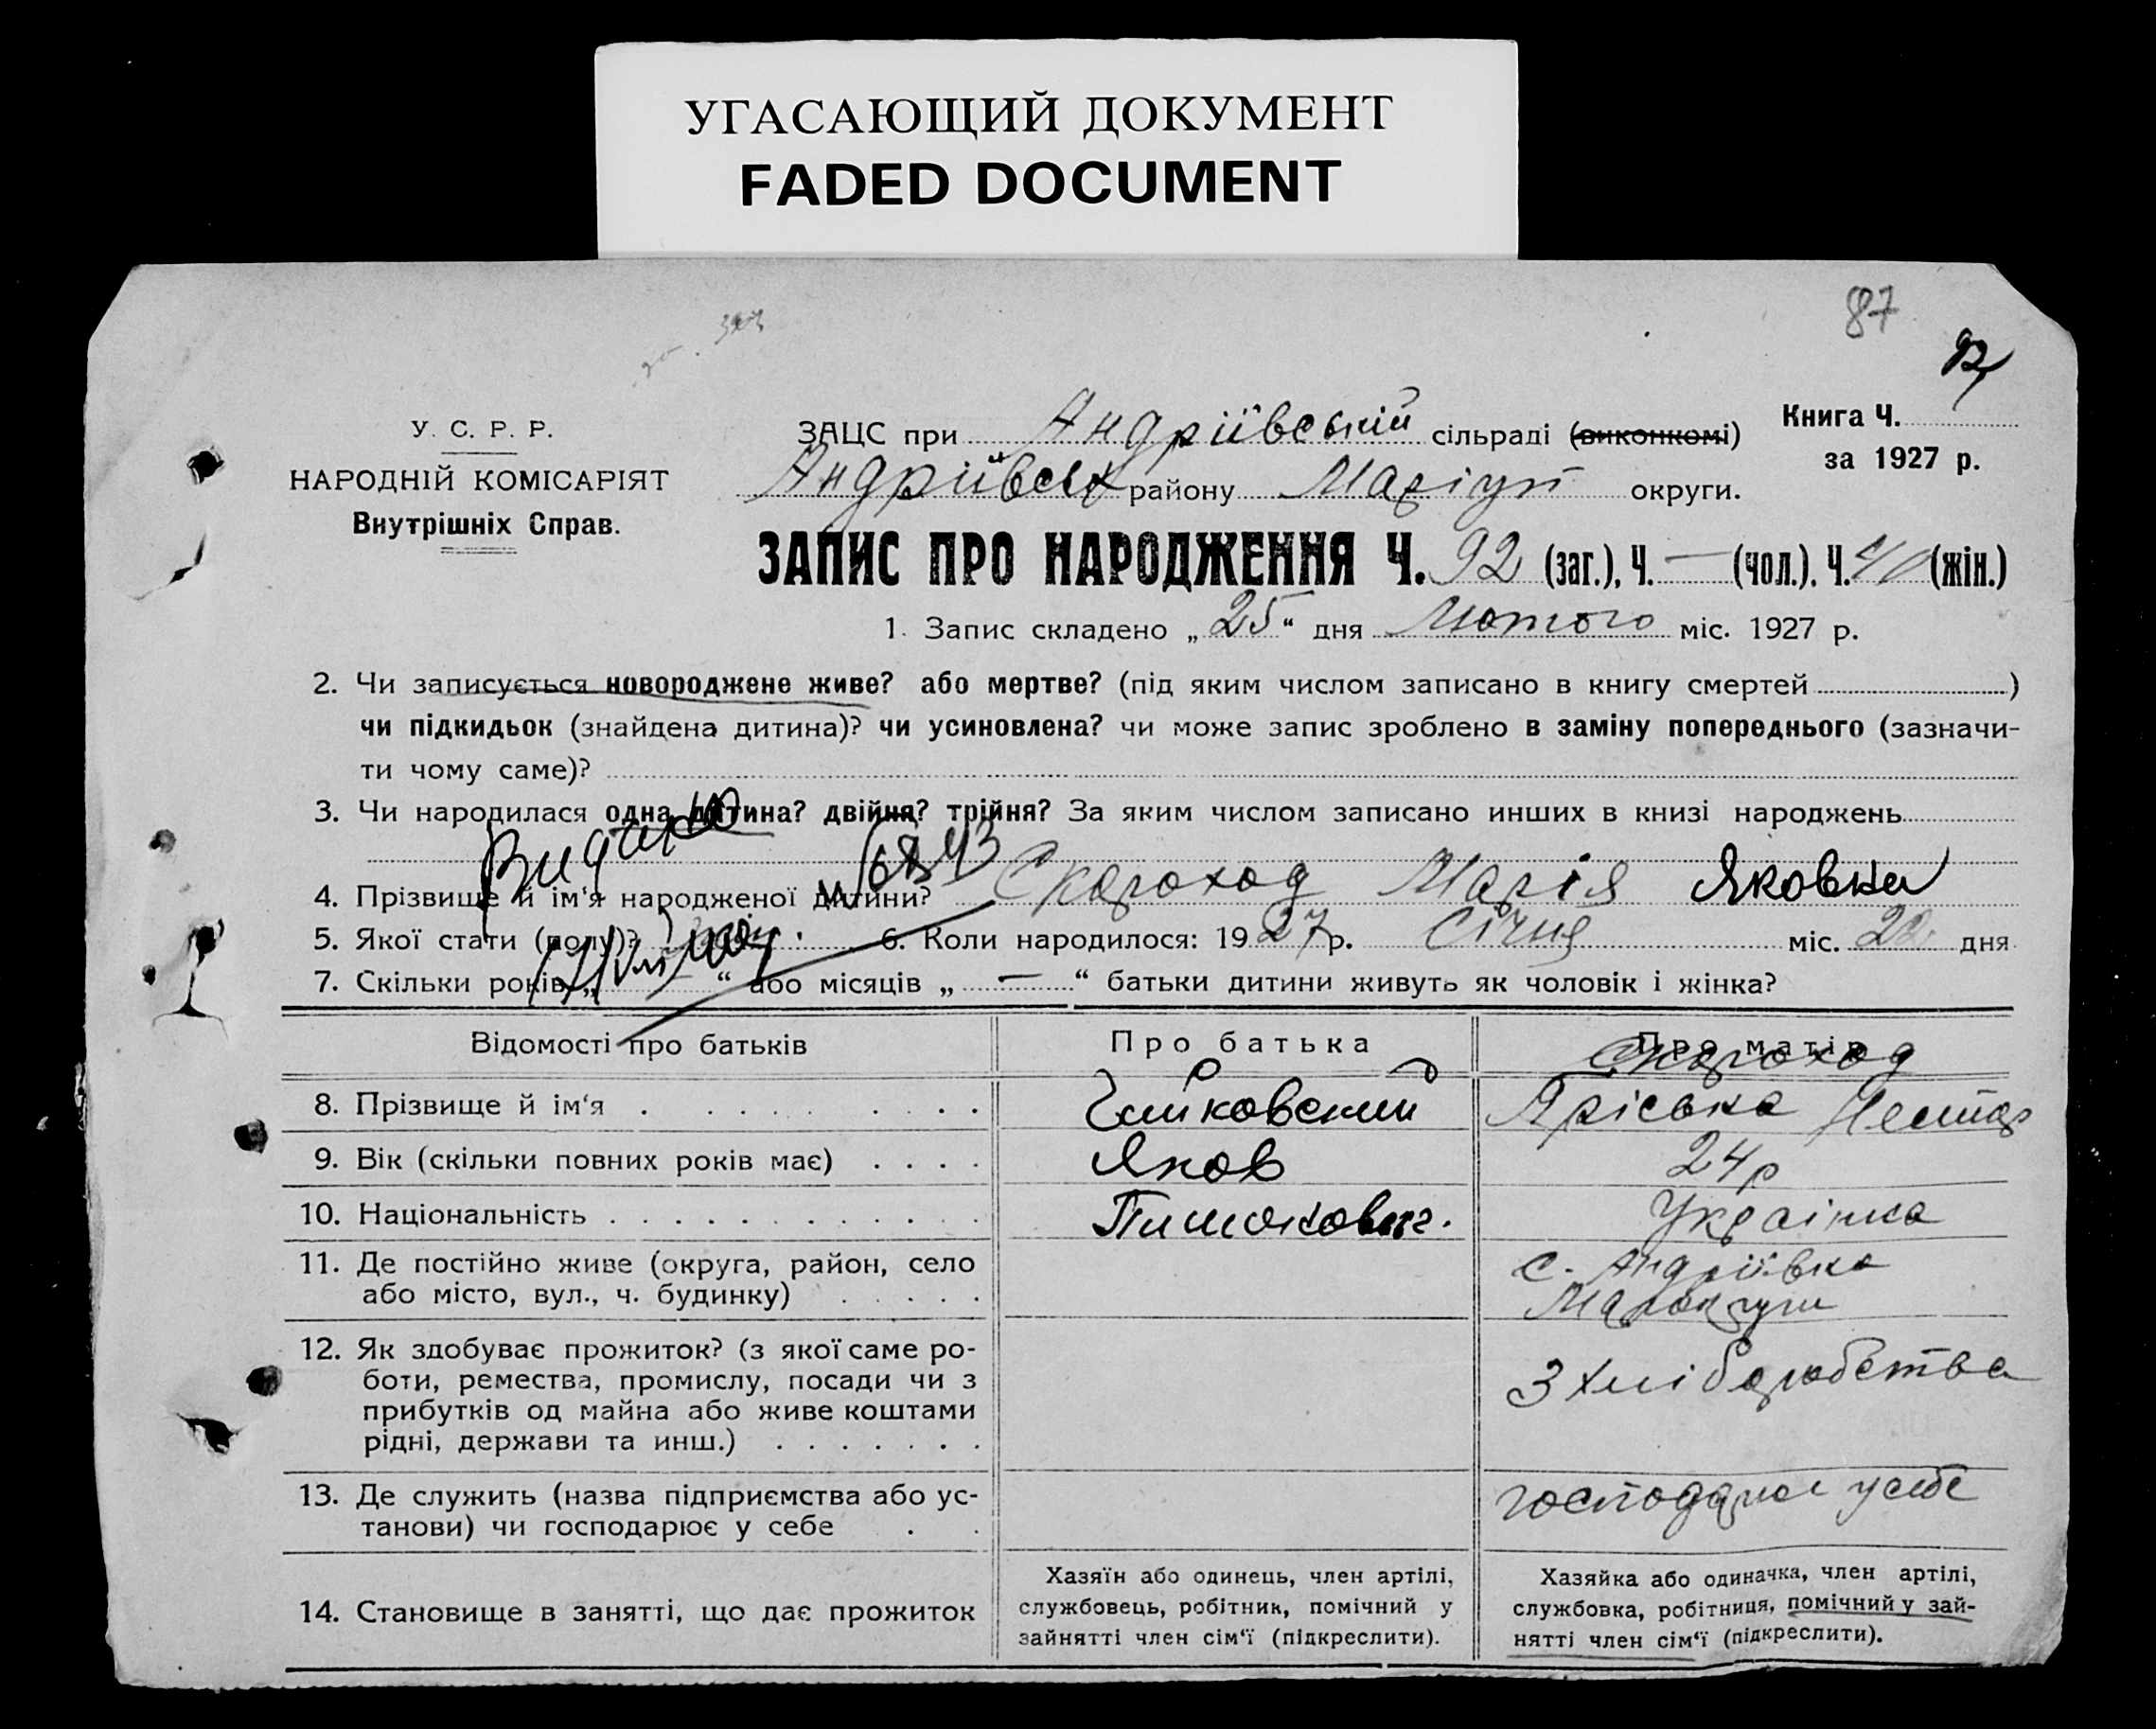 УГАСАЮЩИЙ ДОКУМЕНТ
FADED DOCUMENT
87
92
У. С. Р. Р.
НАРОДНІЙ КОМІСАРІЯТ
Внутрішніх Справ.
ЗАЦС при Андріївській сільраді (виконкомі)
Андріївськ району Маріуп округи.
Книга Ч.
за 1927 р.
ЗАПИС ПРО НАРОДЖЕННЯ Ч. 92 (заг.), Ч. — (чол.), Ч. 40 (жін.)
1. Запис складено „25“ дня Лютого міс. 1927 р.
2. Чи записується новороджене живе? або мертве? (під яким числом записано в книгу смертей)
чи підкидьок (знайдена дитина)? чи усиновлена? чи може запис зроблено в заміну попереднього (зазначи-
ти чому саме)?
3. Чи народилася одна дитина? двійня? трійня? За яким числом записано инших в книзі народжень
4. Прізвище й ім‘я народженої дитини? Скороход Марія Яковна
5. Якої стати (полу)? 6. Коли народилося: 1927 р. Січня міс. 22 дня
7. Скільки років „ “ або місяців „ — “ батьки дитини живуть як чоловік і жінка?
Відомості про батьків
Про батька
Про матір
Скороход
8. Прізвище й ім‘я
Чайковский
Яріська Нестор
9. Вік (скільки повних років має)
Яков
24р
10. Національність
Тимофович.
Українка
11. Де постійно живе (округа, район, село
або місто, вул., ч. будинку)
с. Андріївка
12. Як здобуває прожиток? (з якої саме ро-
боти, ремества, промислу, посади чи з
прибутків од майна або живе коштами
рідні, держави та инш.)
З хліборобства
13. Де служить (назва підприємства або ус-
танови) чи господарює у себе
господарює у себе
14. Становище в занятті, що дає прожиток
Хазяїн або одинець, член артілі,
службовець, робітник, помічний у
зайнятті член сім‘ї (підкреслити).
Хазяйка або одиначка, член артілі,
службовка, робітниця, помічний у зай-
нятті член сім‘ї (підкреслити).